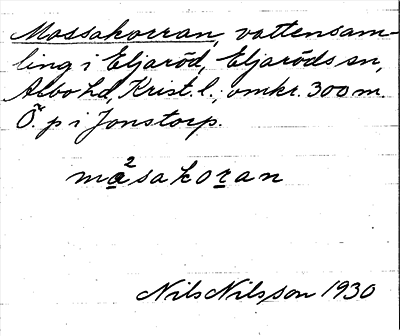 Mossakorran, vattensam-
ling i Eljaröd, Eljaröds sn,
Albo hd, Krist. l., omkr. 300 m.
Ö. p i Jonstorp.
må²sakoran
Nils Nilsson 1930